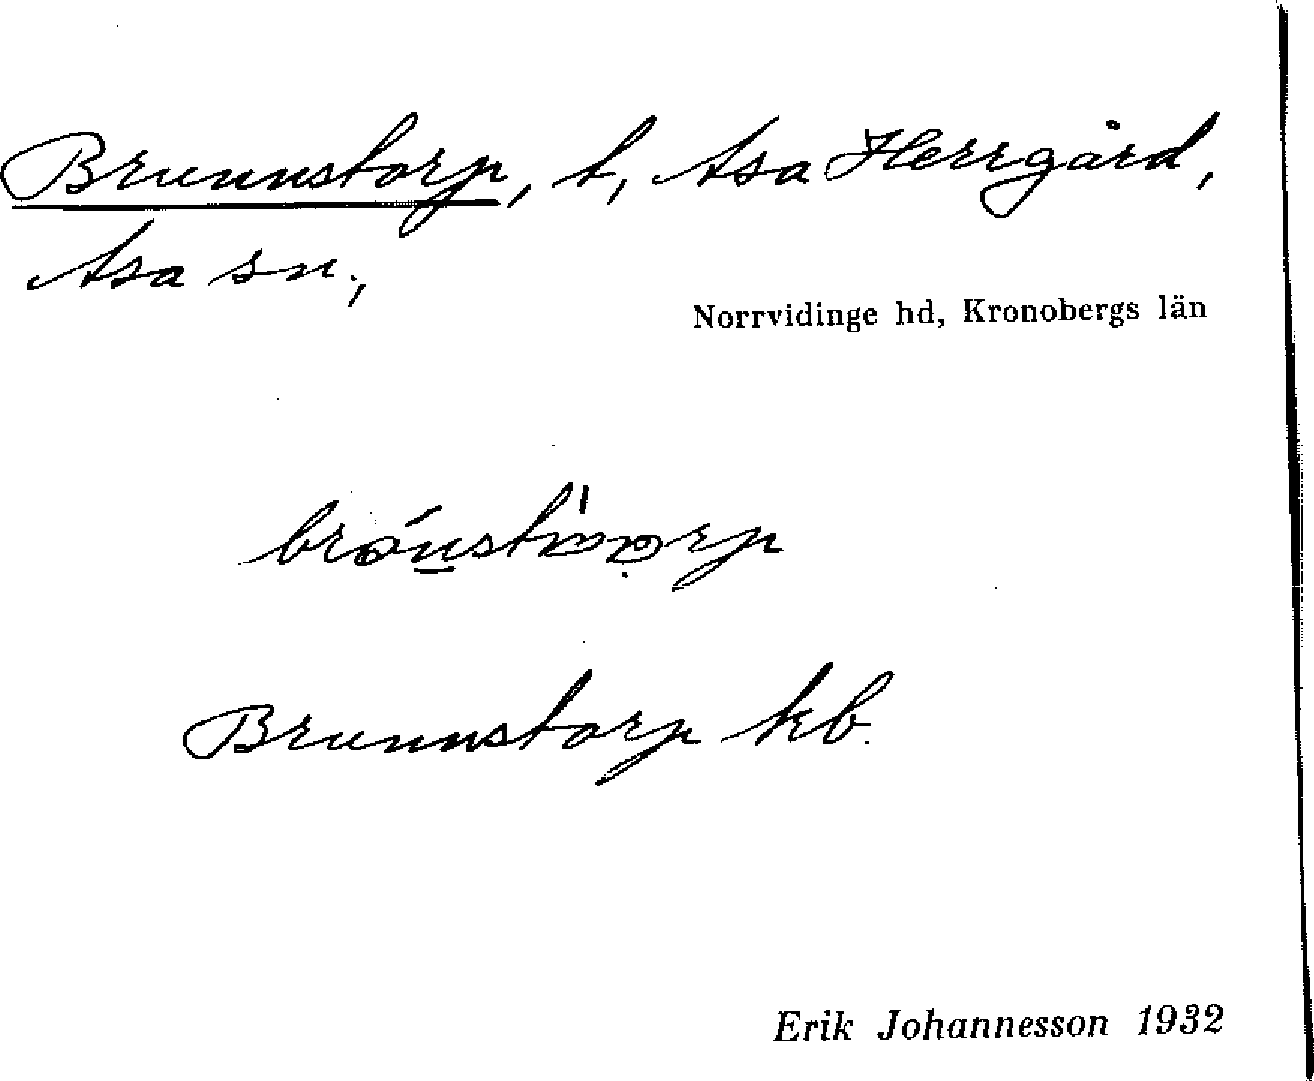 Brunnstorp, t, Asa Herrgård,
Asa sn.,
Norrvidinge hd, Kronobergs län
Brunnstorp kb.
Erik Johannesson 1932